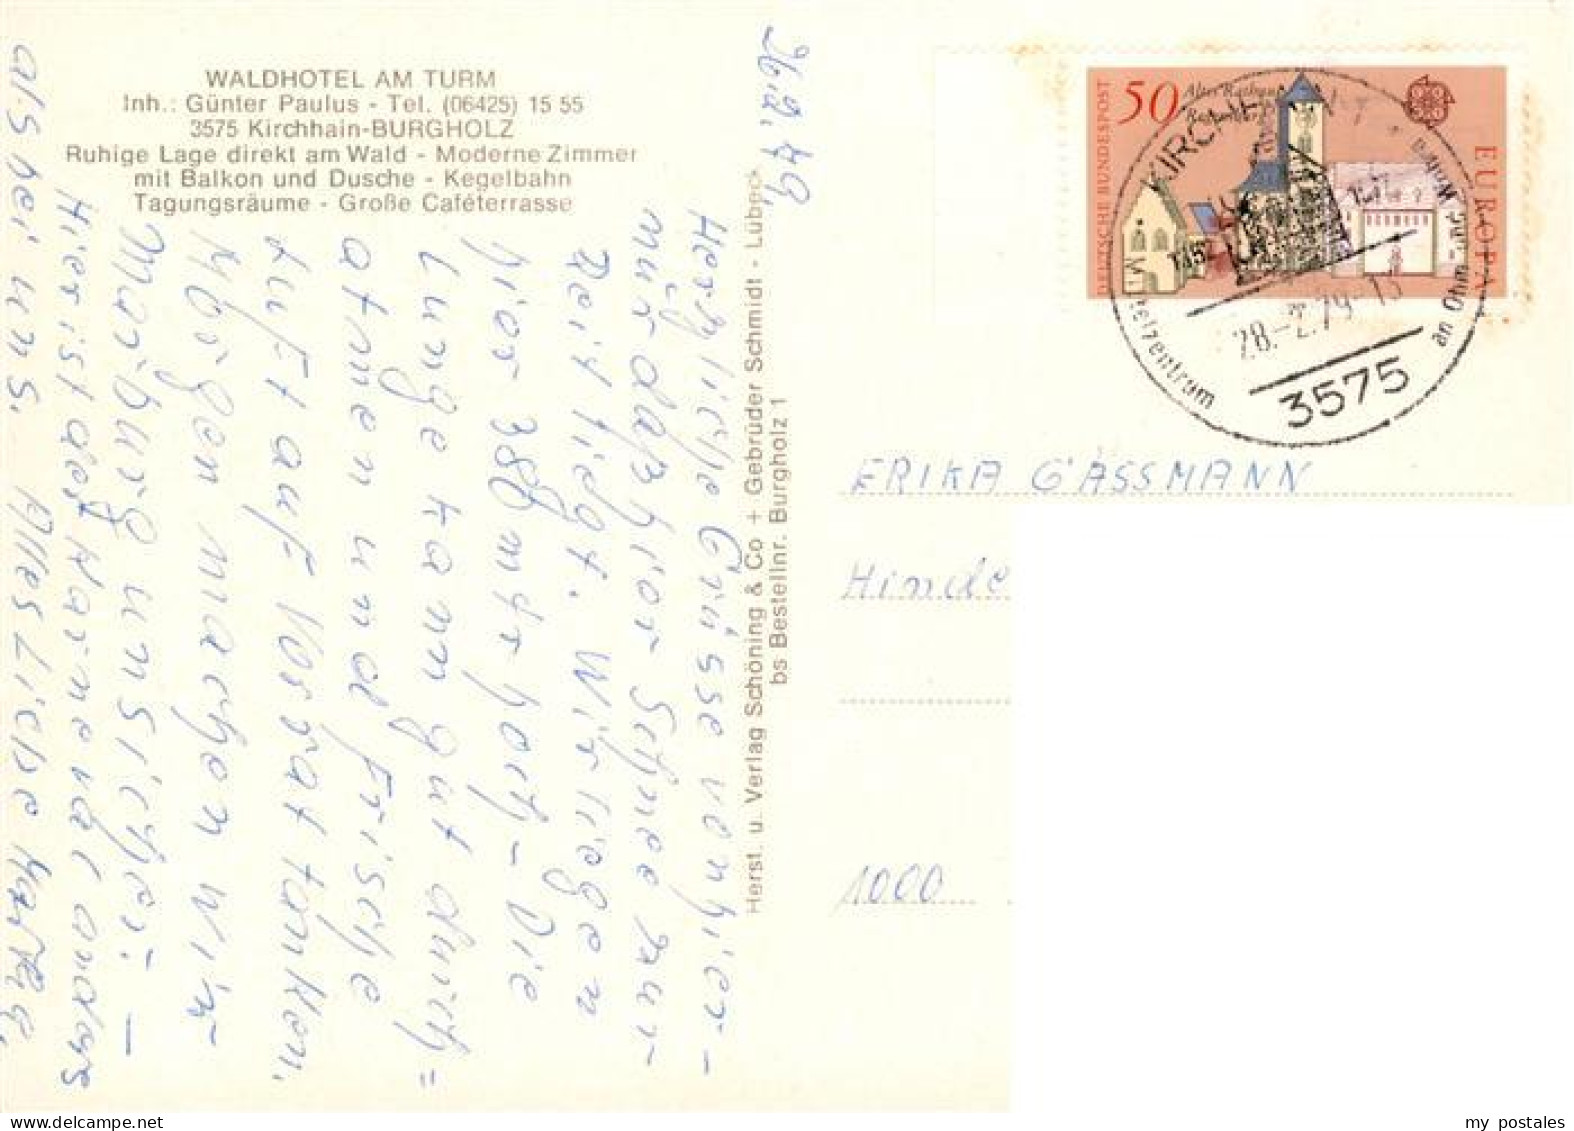 WALDHOTEL AM TURM
Inh.: Günter Paulus - Tel. (06425) 15 55
3575 Kirchhain-BURGHOLZ
Ruhige Lage direkt am Wald - Moderne Zimmer
mit Balkon und Dusche - Kegelbahn
Tagungsräume - Große Caféterrasse
26.2.79.
Herzliche Grüsse von hier -
nur daß hier Schnee zur
Zeit liegt. Wir liegen
hier 380 mtr hoch - Die
Lunge kann gut durch =
atmen und frische
Luft auf Vorrat tanken.
Morgen machen wir
Marburg unsicher! -
Hier ist der Karneval anders
als bei uns. Alles Liebe
Herst. u. Verlag Schöning & Co + Gebrüder Schmidt - Lübeck
bs Bestellnr. Burgholz 1
DEUTSCHE BUNDESPOST
50
Altes Rathaus
EUROPA
KIRCHHAIN 1
Mittelzentrum
an Ohm und Wohra
28.-2.79-15
3575
ERIKA GASSMANN
Hinde
1000
my postales